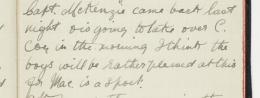 Capt. McKenzie came back last
night & is going to take over C.
Coy in the morning I think the
boys will be rather pleased at this
for Mac. is a sport.